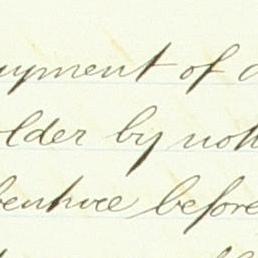 ayment of
older by
benture before